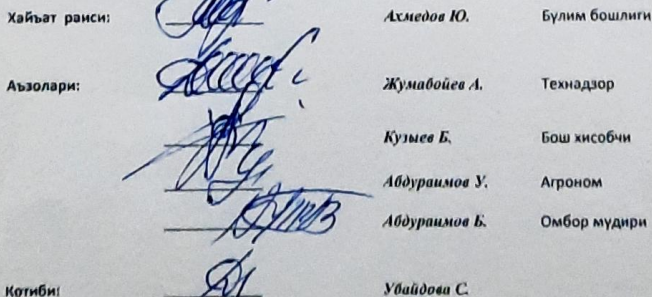 Хайъат раиси: Ахмедов Ю. Бўлим бошлиги
Аъзолари: Жумабойев А. Технадзор
Кузыев Б. Бош хисобчи
Абдураимов У. Агроном
Абдураимов Б. Омбор мудири
Котиби: Увайдова С.